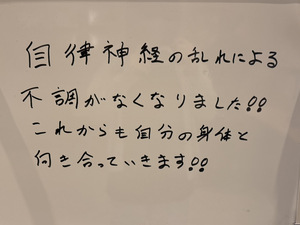 自律神経の乱れによる
不調がなくなりました!!
これからも自分の身体と
向き合っていきます!!